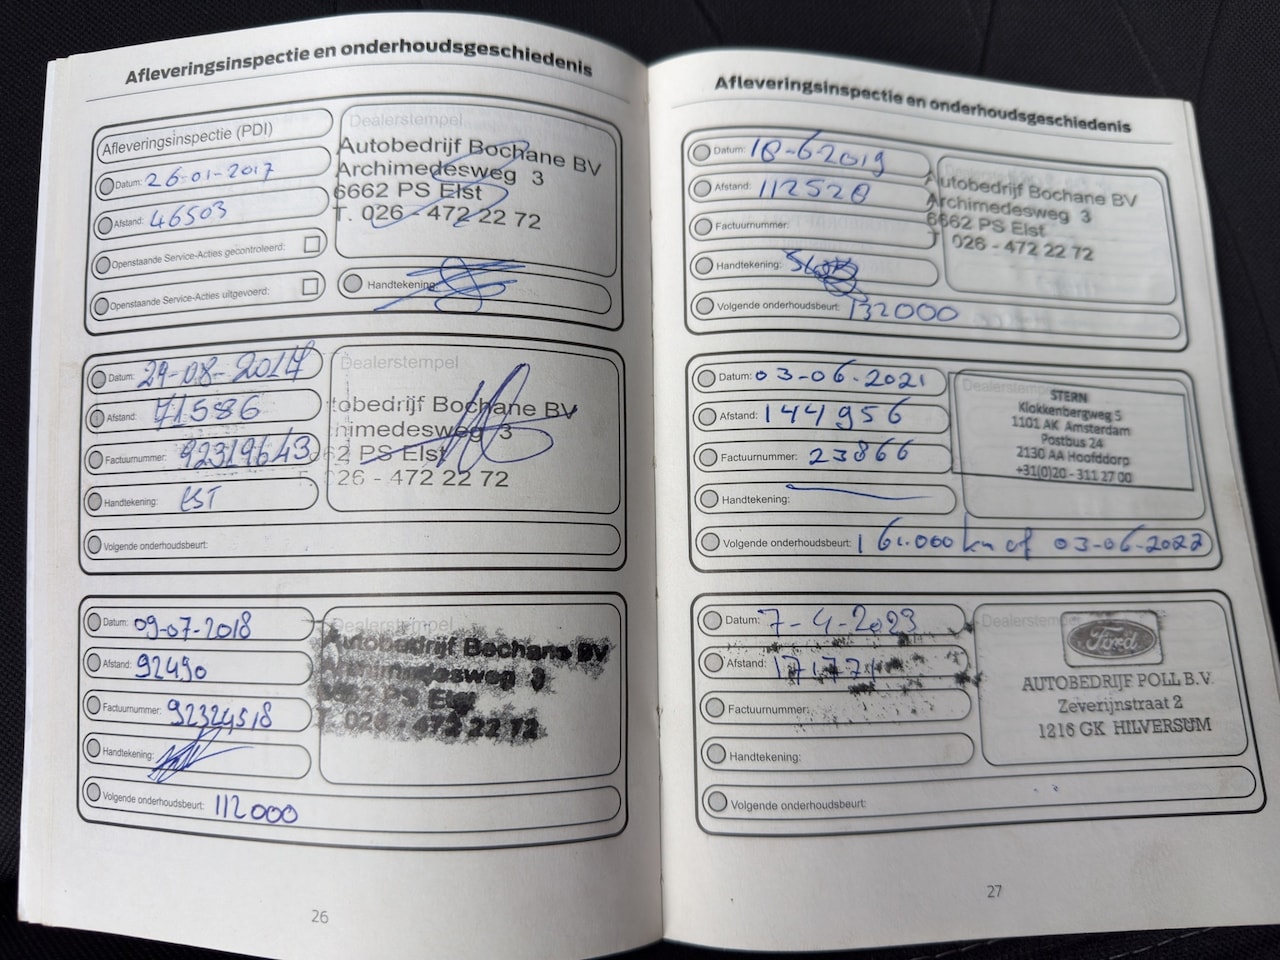 Afleveringsinspectie en onderhoudsgeschiedenis
Afleveringsinspectie (PDI)
Datum: 26-01-2017
Afstand: 46503
Openstaande Service-Acties gecontroleerd:
Openstaande Service-Acties uitgevoerd:
Dealerstempel
Autobedrijf Bochane BV
Archimedesweg 3
6662 PS Elst
T. 026 - 472 22 72
Handtekening:
Datum: 29-08-2017
Afstand: 71586
Factuurnummer: 92319643
Handtekening: EST
Volgende onderhoudsbeurt:
Dealerstempel
tobedrijf Bochane BV
himedesweg 3
62 PS Elst
026 - 472 22 72
Datum: 09-07-2018
Afstand: 92490
Factuurnummer: 92324518
Handtekening:
Volgende onderhoudsbeurt: 112000
Dealerstempel
Autobedrijf Bochane BV
Archimedesweg 3
PS Elst
T. 026 - 472 22 72
26
Afleveringsinspectie en onderhoudsgeschiedenis
Datum: 18-6-2019
Afstand: 112528
Factuurnummer:
Handtekening:
Volgende onderhoudsbeurt: 132000
Autobedrijf Bochane BV
Archimedesweg 3
6662 PS Elst
T 026 - 472 22 72
Datum: 03-06-2021
Afstand: 144956
Factuurnummer: 23866
Handtekening:
Volgende onderhoudsbeurt: 160.000 km of 03-06-2022
Dealerstempel
STERN
Klokkenbergweg 5
1101 AK Amsterdam
Postbus 24
2130 AA Hoofddorp
+31(0)20 - 311 27 00
Datum: 7-4-2023
Afstand: 171771
Factuurnummer:
Handtekening:
Volgende onderhoudsbeurt:
Dealerstempel
Ford
AUTOBEDRIJF POLL B.V.
Zeverijnstraat 2
1216 GK HILVERSUM
27